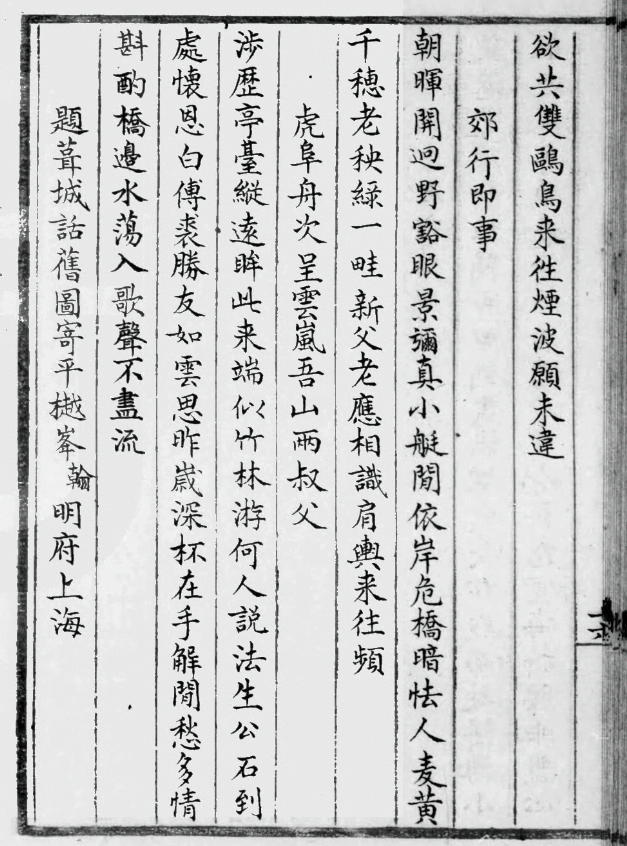 欲共雙鷗鳥来往煙波願未違
郊行即事
朝暉開迥野豁眼景彌真小艇閒依岸危橋暗怯人麦黄
千穂老秧綠一畦新父老應相識肩輿来往頻
虎阜舟次呈雲嵐吾山兩叔父
涉歴亭臺縱遠眸此来端似竹林游何人説法生公石到
處懷恩白傅裘勝友如雲思昨歲深杯在手解閒愁多情
斟酌橋邉水蕩入歌聲不盡流
題葺城話舊圖寄平樾峯翰明府上海